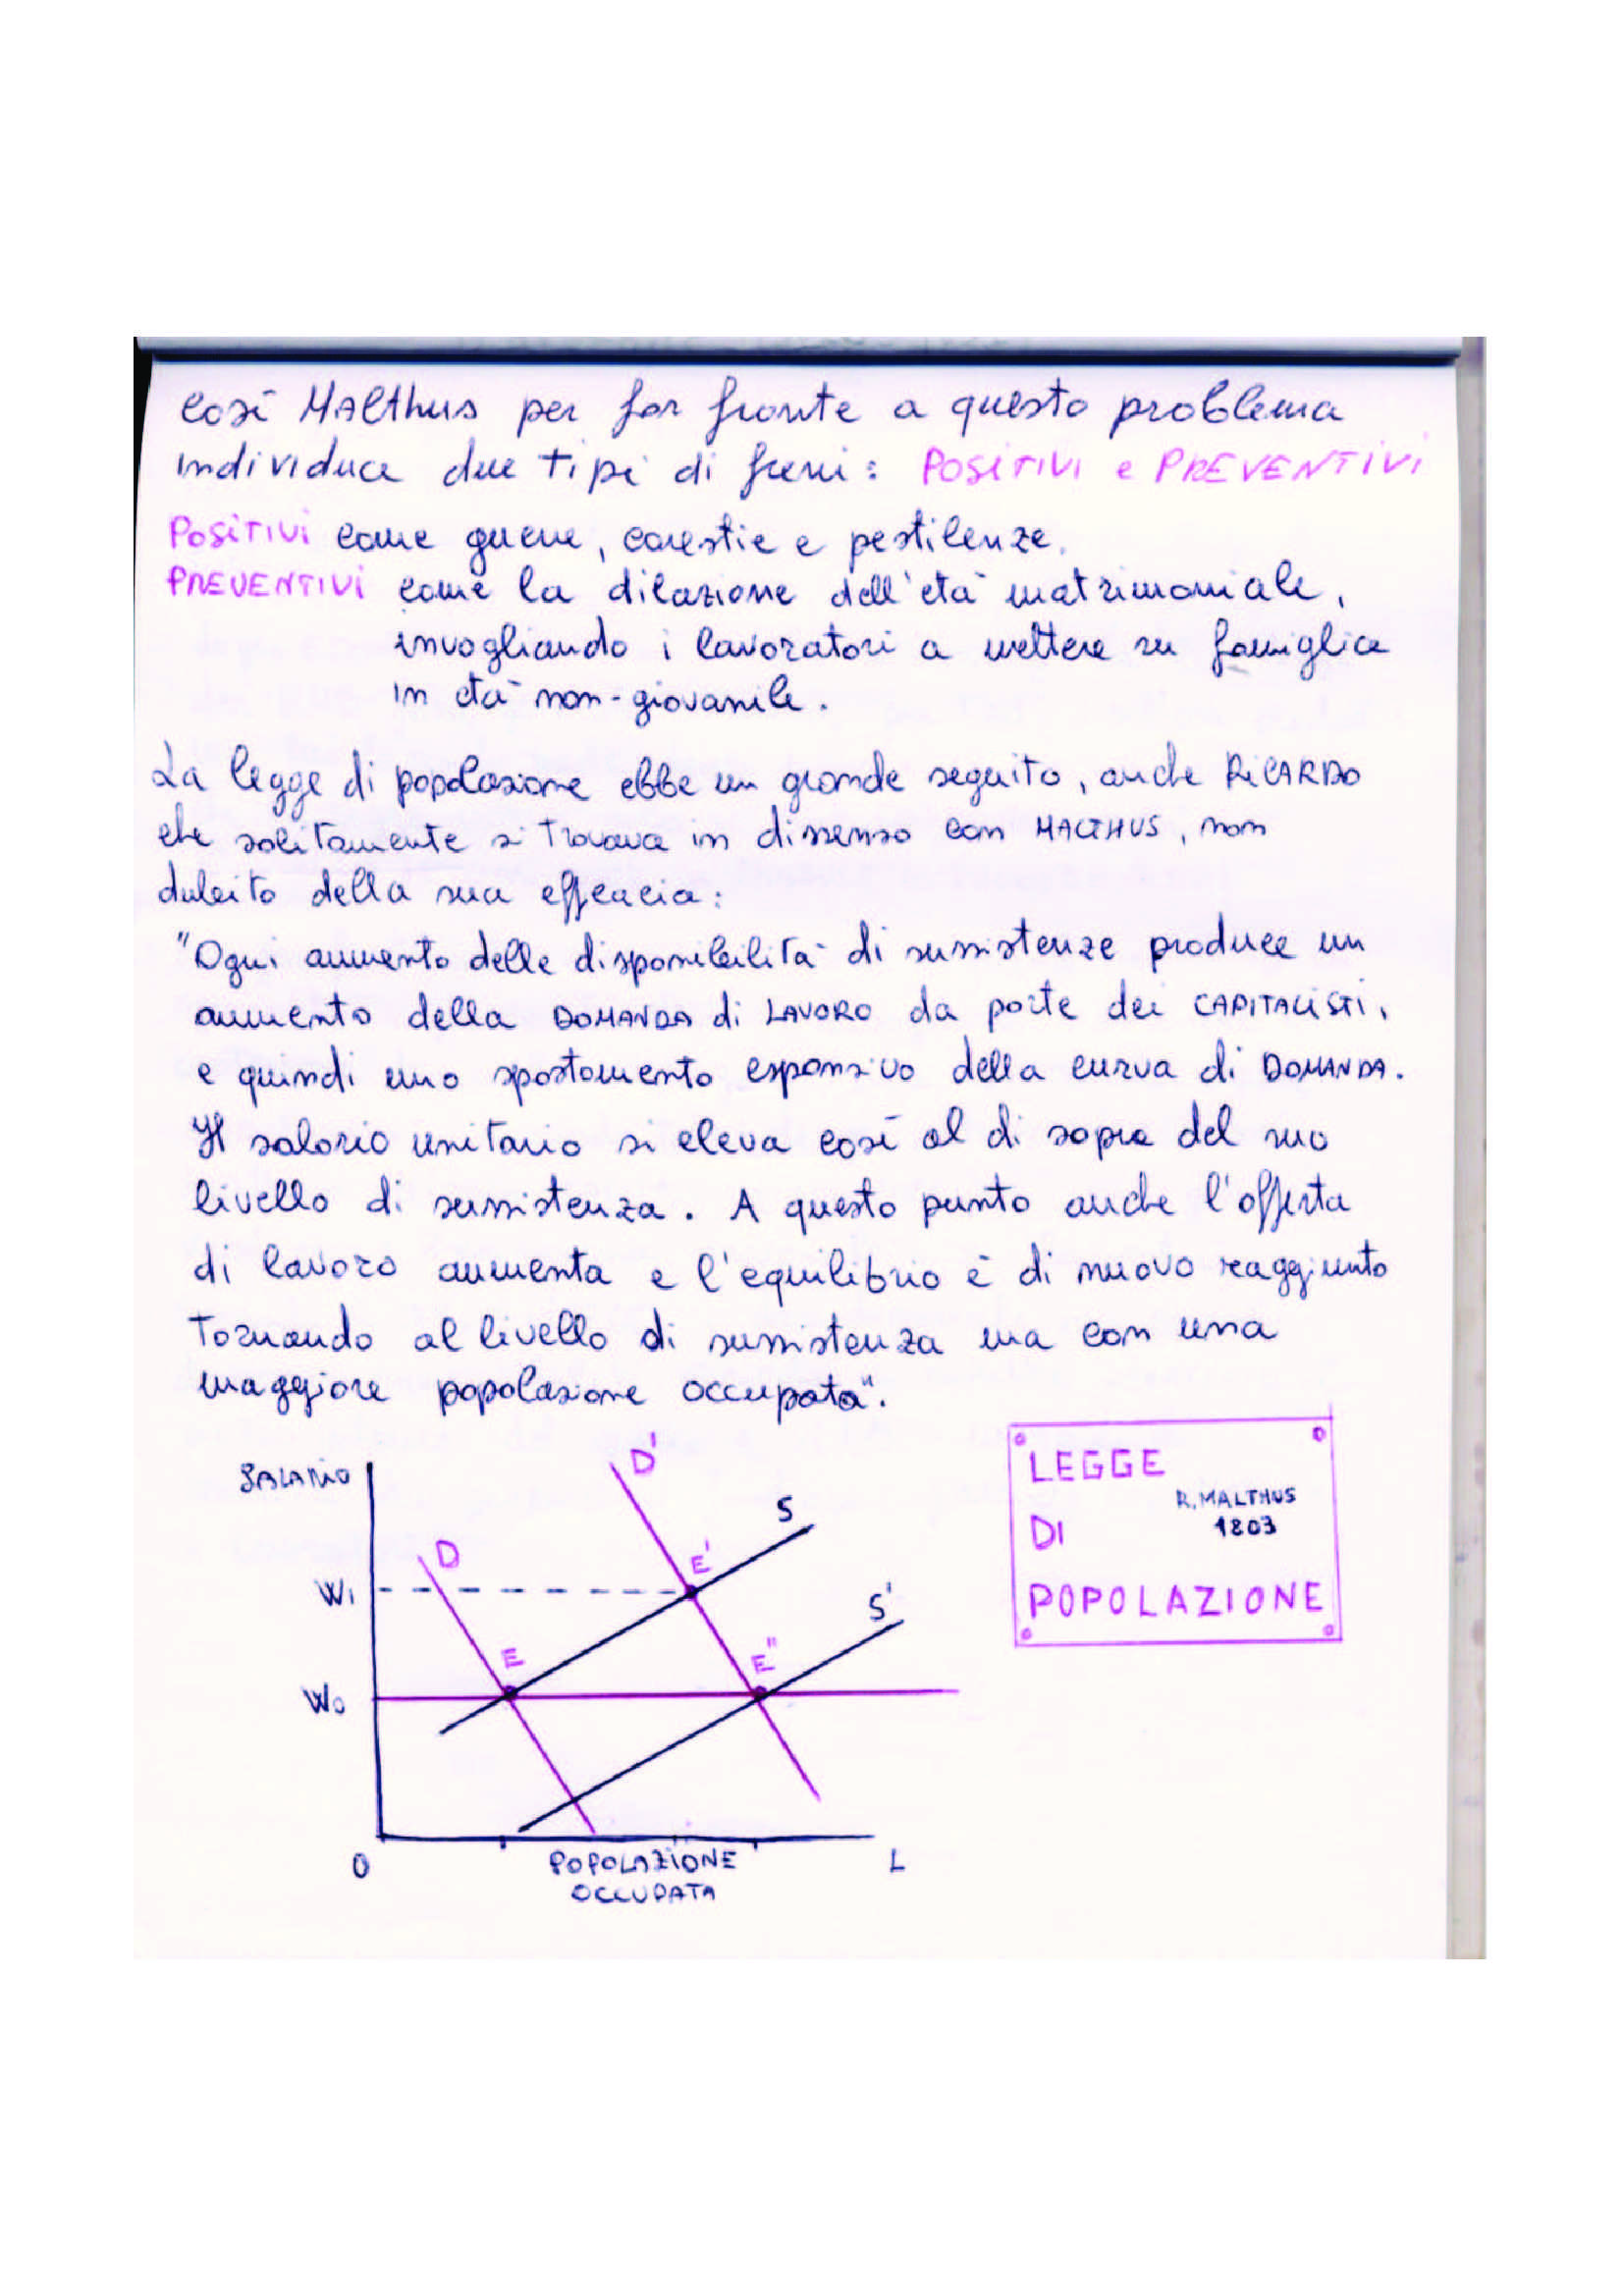 così Malthus per far fronte a questo problema
individua due tipi di freni: POSITIVI e PREVENTIVI
POSITIVI come guerre, carestie e pestilenze.
PREVENTIVI come la dilazione dell'età matrimoniale,
invogliando i lavoratori a mettere su famiglia
in età non-giovanile.
La legge di popolazione ebbe un grande seguito, anche RICARDO
che solitamente si trovava in dissenso con MALTHUS, non
dubitò della sua efficacia:
"Ogni aumento delle disponibilità di sussistenze produce un
aumento della DOMANDA di LAVORO da parte dei CAPITALISTI,
e quindi uno spostamento espansivo della curva di DOMANDA.
Il salario unitario si eleva così al di sopra del suo
livello di sussistenza. A questo punto anche l'offerta
di lavoro aumenta e l'equilibrio è di nuovo raggiunto
tornando al livello di sussistenza ma con una
maggiore popolazione occupata".
SALARIO
D'
S
D
E'
W1
S'
E
E"
W0
O
POPOLAZIONE
OCCUPATA
L
LEGGE
R. MALTHUS
1803
DI
POPOLAZIONE